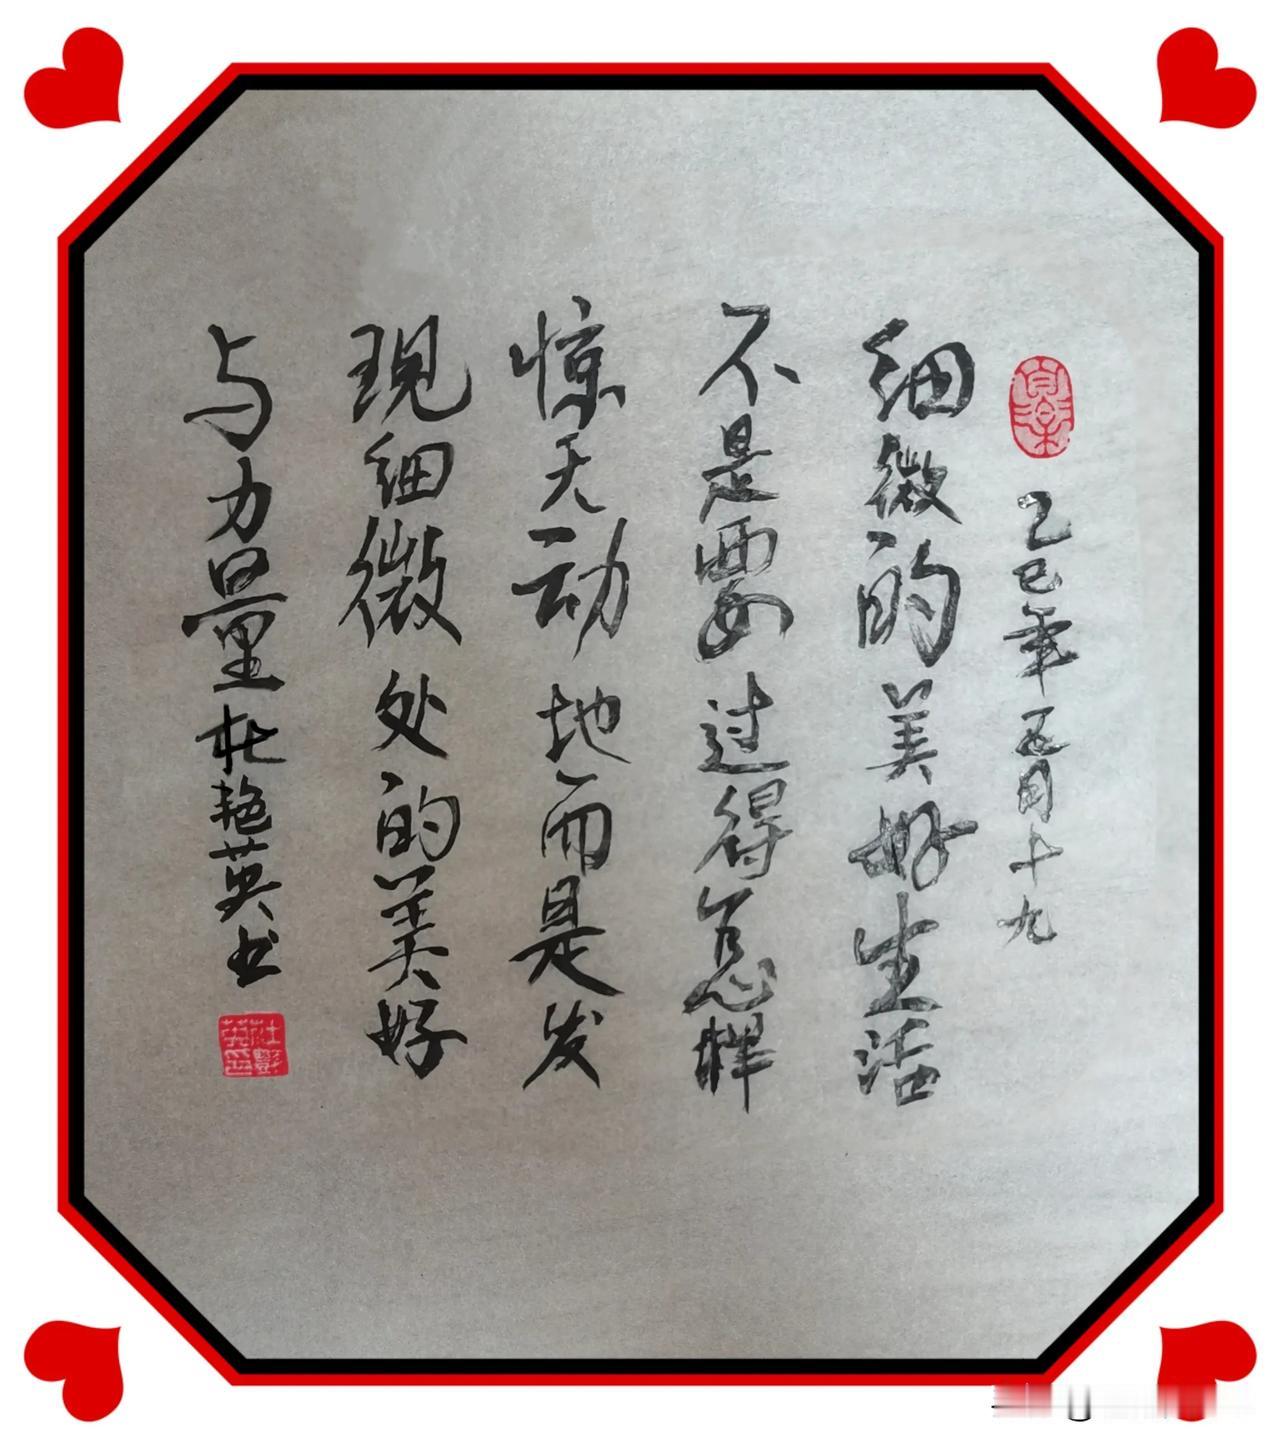 乙巳年五月十九
细微的美好生活
不是要过得怎样
惊天动地而是发
现细微处的美好
与力量杜艳英书
杜艷英印